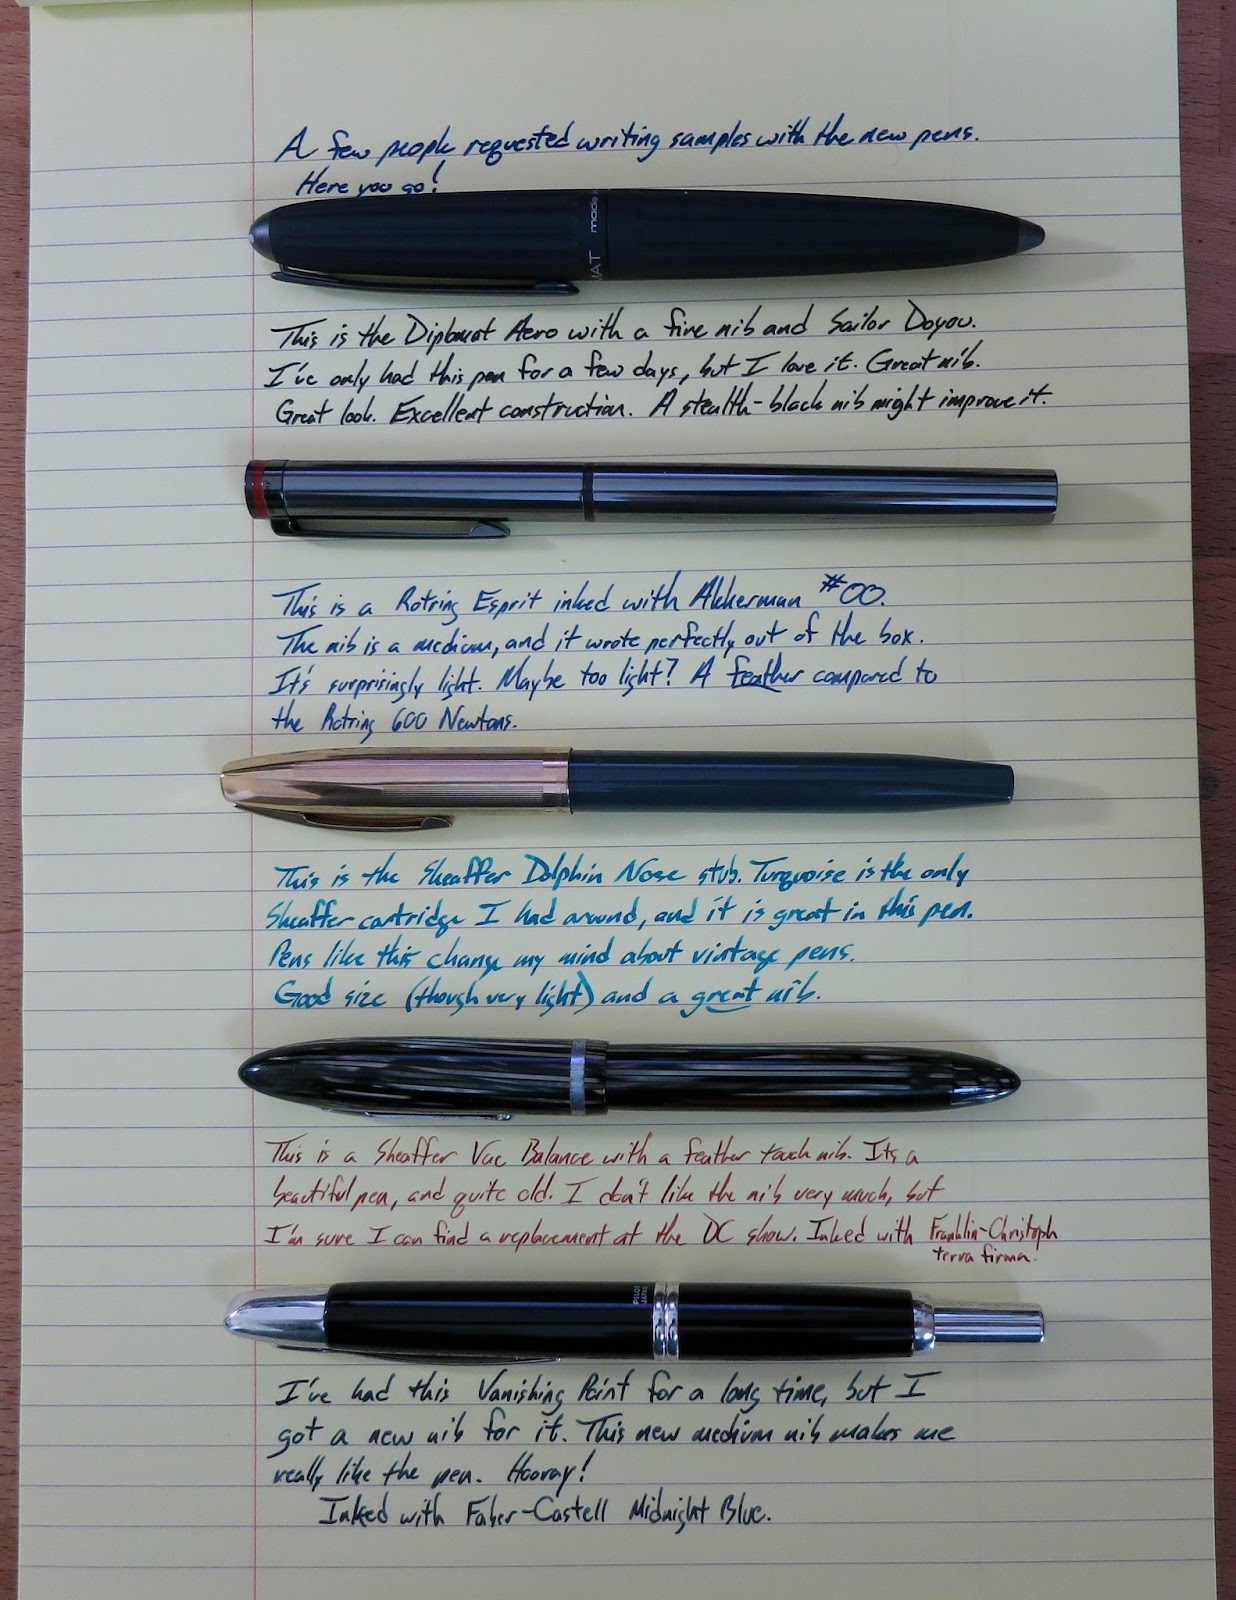 A few people requested writing samples with the new pens.
Here you go!
made
MAT
This is the Diplomat Aero with a fine nib and Sailor Doyou.
I've only had this pen for a few days, but I love it. Great nib.
Great look. Excellent construction. A stealth-black nib might improve it.
This is a Rotring Esprit inked with Akkerman #00.
The nib is a medium, and it wrote perfectly out of the box.
It's surprisingly light. Maybe too light? A feather compared to
the Rotring 600 Newtons.
This is the Sheaffer Dolphin Nose stub. Turquoise is the only
Sheaffer cartridge I had around, and it is great in this pen.
Pens like this change my mind about vintage pens.
Good size (though very light) and a great nib.
This is a Sheaffer Vac Balance with a feather touch nib. Its a
beautiful pen, and quite old. I don't like the nib very much, but
I'm sure I can find a replacement at the DC show. Inked with Franklin-Christoph
terra firma.
PILOT
JAPAN
I've had this Vanishing Point for a long time, but I
got a new nib for it. This new medium nib makes me
really like the pen. Hooray!
Inked with Faber-Castell Midnight Blue.